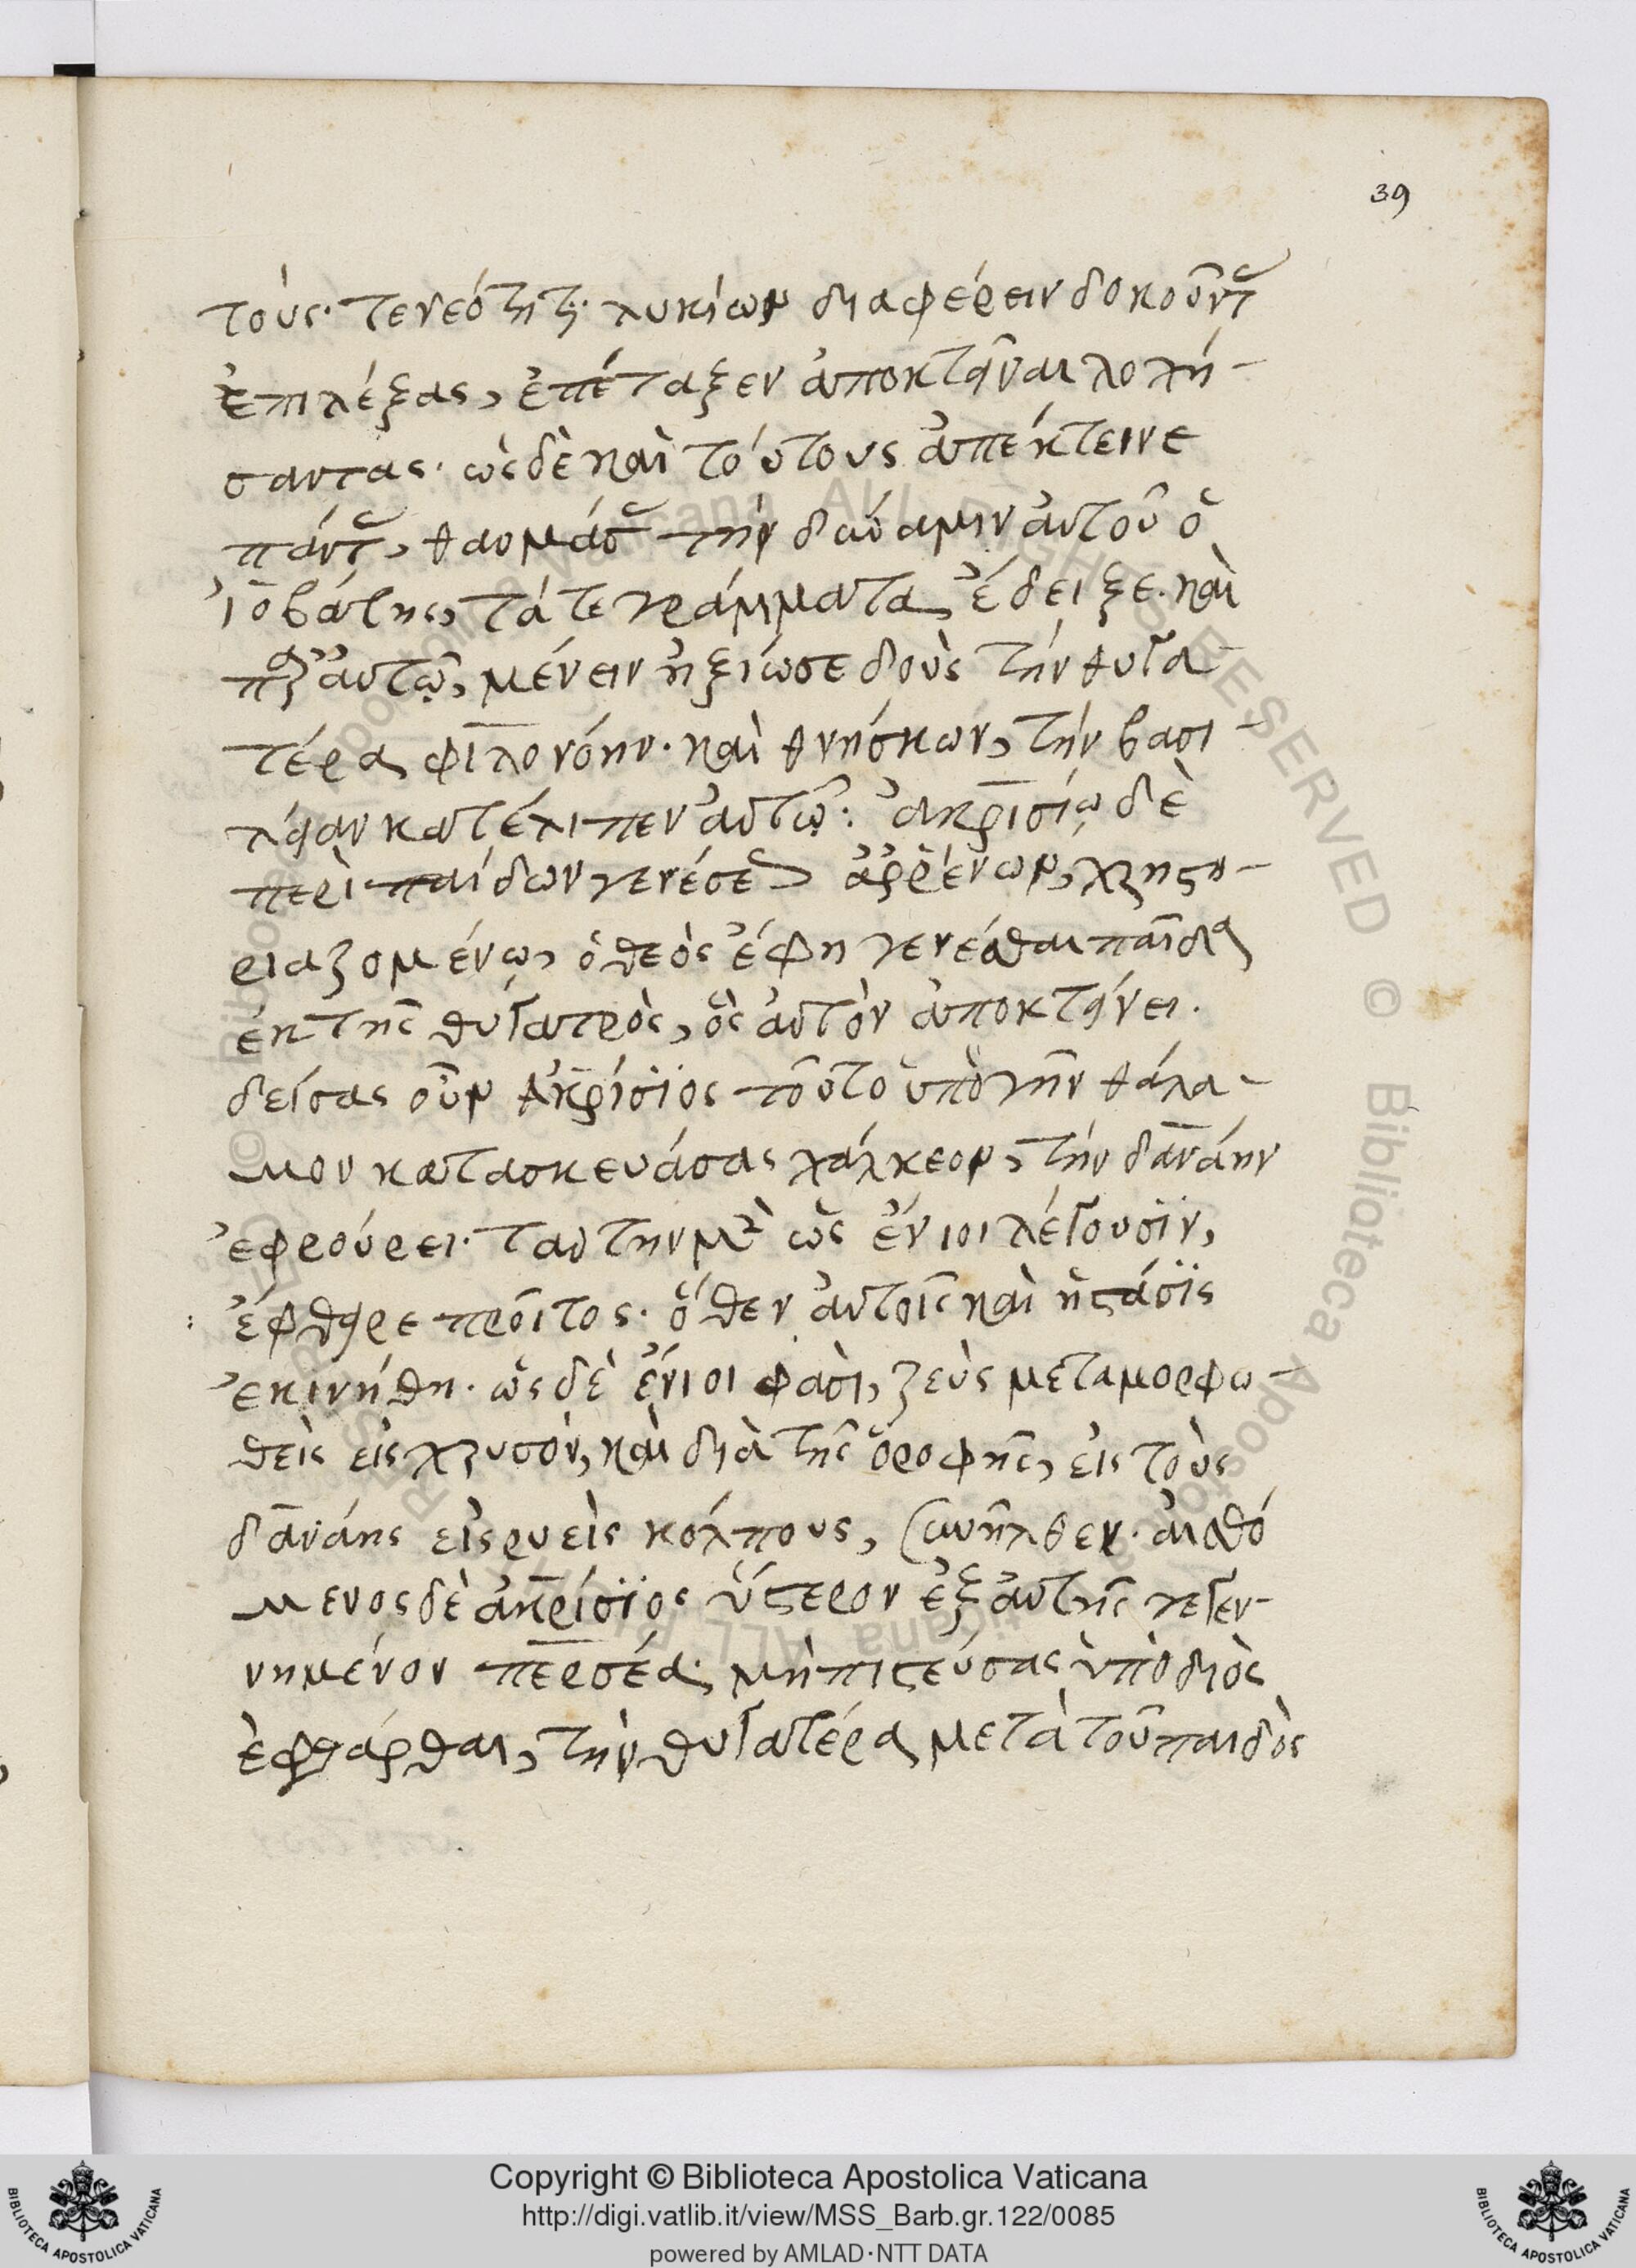 39
τοὺς· τε νεότητι· λυκίων διαφέρειν δοκοῦντας
ἐπιλέξας, ἐπέταξεν ἀποκτεῖναι λοχή-
σαντας· ὡς δὲ καὶ τούτους ἀπέκτεινε
πάντας, θαυμάσας τὴν δύναμιν αὐτοῦ ὁ
ἰοβάτης, τά τε γράμματα ἔδειξε· καὶ
παρ' αὐτῷ, μένειν ἠξίωσε δοὺς τὴν θυγα-
τέρα φιλονόην· καὶ θνήσκων, τὴν βασι-
λείαν κατέλιπεν αὐτῷ: ἀκρισίῳ δὲ
περὶ παίδων γενέσεως ἀῤῥένων, χρηστη-
ριαζομένῳ, ὁ θεὸς ἔφη γενέσθαι παῖδα
ἐκ τῆς θυγατρὸς, ὃς αὐτὸν ἀποκτείνει.
δείσας οὖν ἀκρίσιος τοῦτο ὑπὸ γῆν θάλα-
μον κατασκευάσας χάλκεον, τὴν δανάην
ἐφρούρει· ταύτην μὲν ὡς ἔνιοι λέγουσϊν,
: ἔφθειρε προῖτος· ὅθεν αὐτοῖς καὶ ἡ στάσϊς
ἐκινήθη· ὡς δὲ ἔνιοι φασι, ζεὺς μεταμορφω-
θεὶς εἰς χρυσὸν, καὶ διὰ τῆς ὀροφῆς, εἰς τοὺς
δανάης εἰσρυεὶς κόλπους, συνῆλθεν· αἰσθό
μενος δὲ ἀκρίσϊος ὕστερον ἐξ αὐτῆς γεγεν-
νημένον περσέα· μὴ πιστεύσας ὑπὸ διὸς
ἐφθάρθαι, τὴν θυγατέρα μετὰ τοῦ παιδὸς
Copyright © Biblioteca Apostolica Vaticana
http://digi.vatlib.it/view/MSS_Barb.gr.122/0085
powered by AMLAD·NTT DATA
BIBLIOTECA APOSTOLICA VATICANA
BIBLIOTECA APOSTOLICA VATICANA